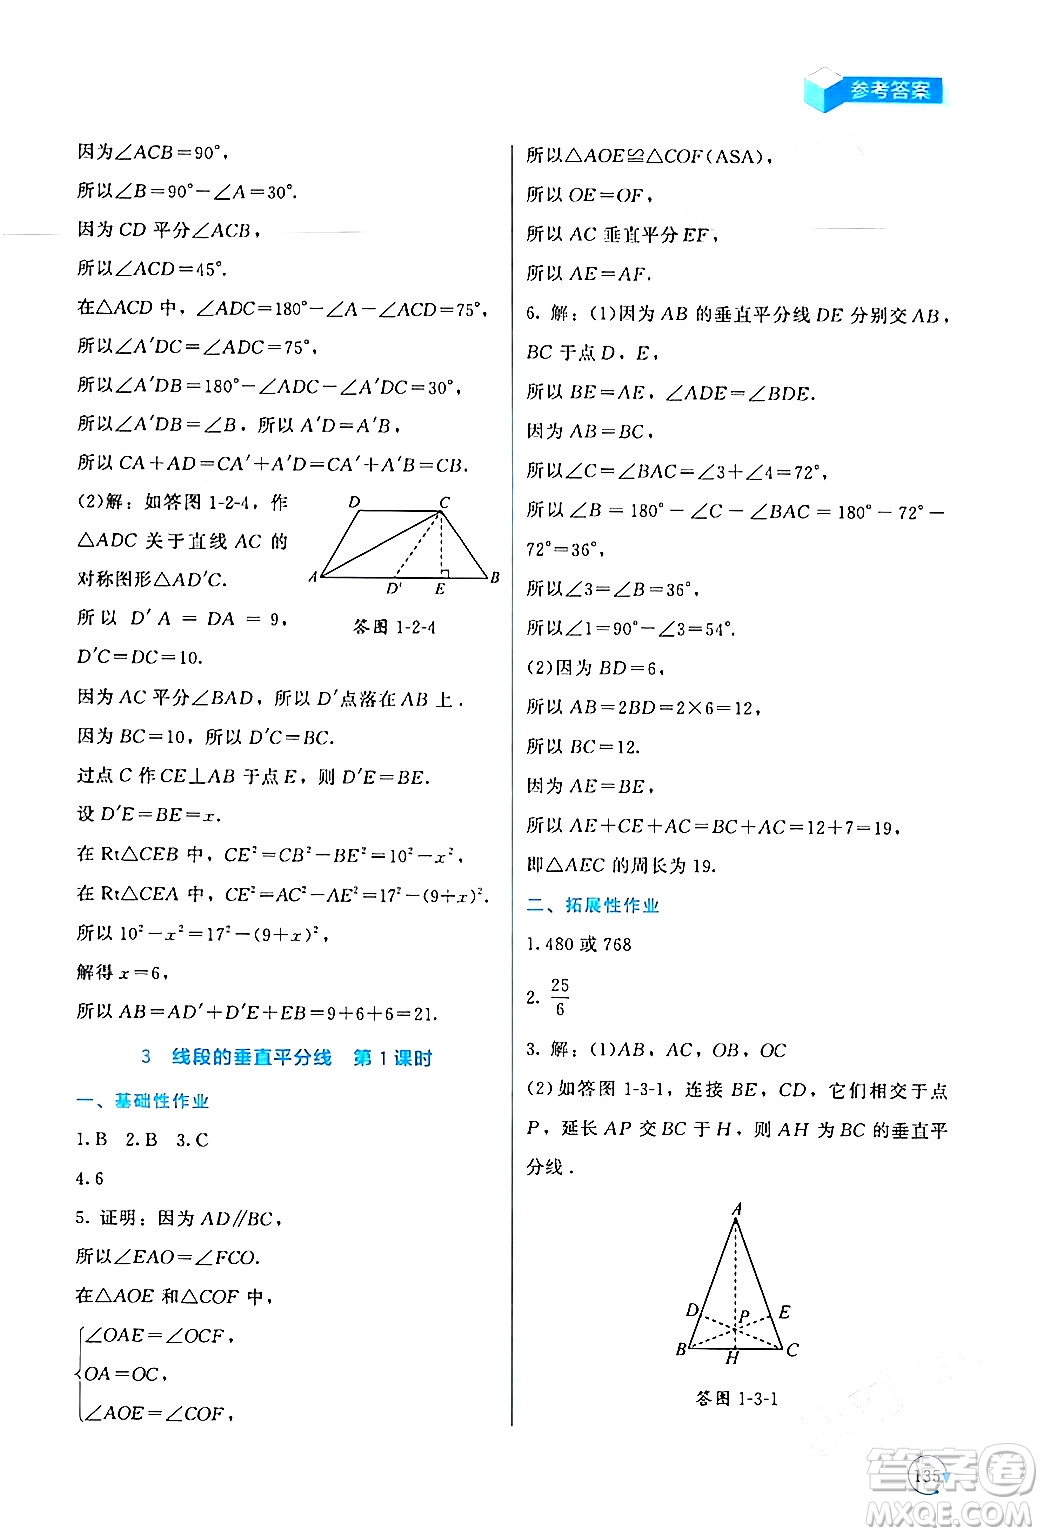 参考答案
因为∠ACB=90°,
所以∠B=90°-∠A=30°.
因为 CD 平分∠ACB,
所以∠ACD=45°.
在△ACD 中，∠ADC=180°-∠A-∠ACD=75°,
所以∠A′DC=∠ADC=75°,
所以∠A′DB=180°-∠ADC-∠A′DC=30°,
所以∠A′DB=∠B，所以 A′D=A′B,
所以 CA+AD=CA′+A′D=CA′+A′B=CB.
(2)解：如答图 1-2-4，作
△ADC 关于直线 AC 的
对称图形△AD′C.
所以 D′A = DA = 9,
D′C=DC=10.
D
C
A
D′
E
B
答图 1-2-4
因为 AC 平分∠BAD，所以 D′点落在 AB 上.
因为 BC=10，所以 D′C=BC.
过点 C 作 CE⊥AB 于点 E，则 D′E=BE.
设 D′E=BE=x.
在 Rt△CEB 中，CE²=CB²-BE²=10²-x²,
在 Rt△CEA 中，CE²=AC²-AE²=17²-(9+x)².
所以 10²-x²=17²-(9+x)²,
解得 x=6,
所以 AB=AD′+D′E+EB=9+6+6=21.
3 线段的垂直平分线 第 1 课时
一、基础性作业
1.B 2.B 3.C
4.6
5. 证明：因为 AD∥BC,
所以∠EAO=∠FCO.
在△AOE 和△COF 中，
∠OAE=∠OCF,
OA=OC,
∠AOE=∠COF,
所以△AOE≌△COF(ASA),
所以 OE=OF,
所以 AC 垂直平分 EF,
所以 AE=AF.
6. 解：(1)因为 AB 的垂直平分线 DE 分别交 AB,
BC 于点 D，E,
所以 BE=AE，∠ADE=∠BDE.
因为 AB=BC,
所以∠C=∠BAC=∠3+∠4=72°,
所以 ∠B = 180° - ∠C - ∠BAC = 180° - 72° -
72°=36°,
所以∠3=∠B=36°,
所以∠1=90°-∠3=54°.
(2)因为 BD=6,
所以 AB=2BD=2×6=12,
所以 BC=12.
因为 AE=BE,
所以 AE+CE+AC=BC+AC=12+7=19,
即△AEC 的周长为 19.
二、拓展性作业
1. 480 或 768
2. 25/6
3. 解：(1)AB，AC，OB，OC
(2)如答图 1-3-1，连接 BE，CD，它们相交于点
P，延长 AP 交 BC 于 H，则 AH 为 BC 的垂直平
分线.
A
D
P
E
B
H
C
答图 1-3-1
135
答案卷
MXQE.COM